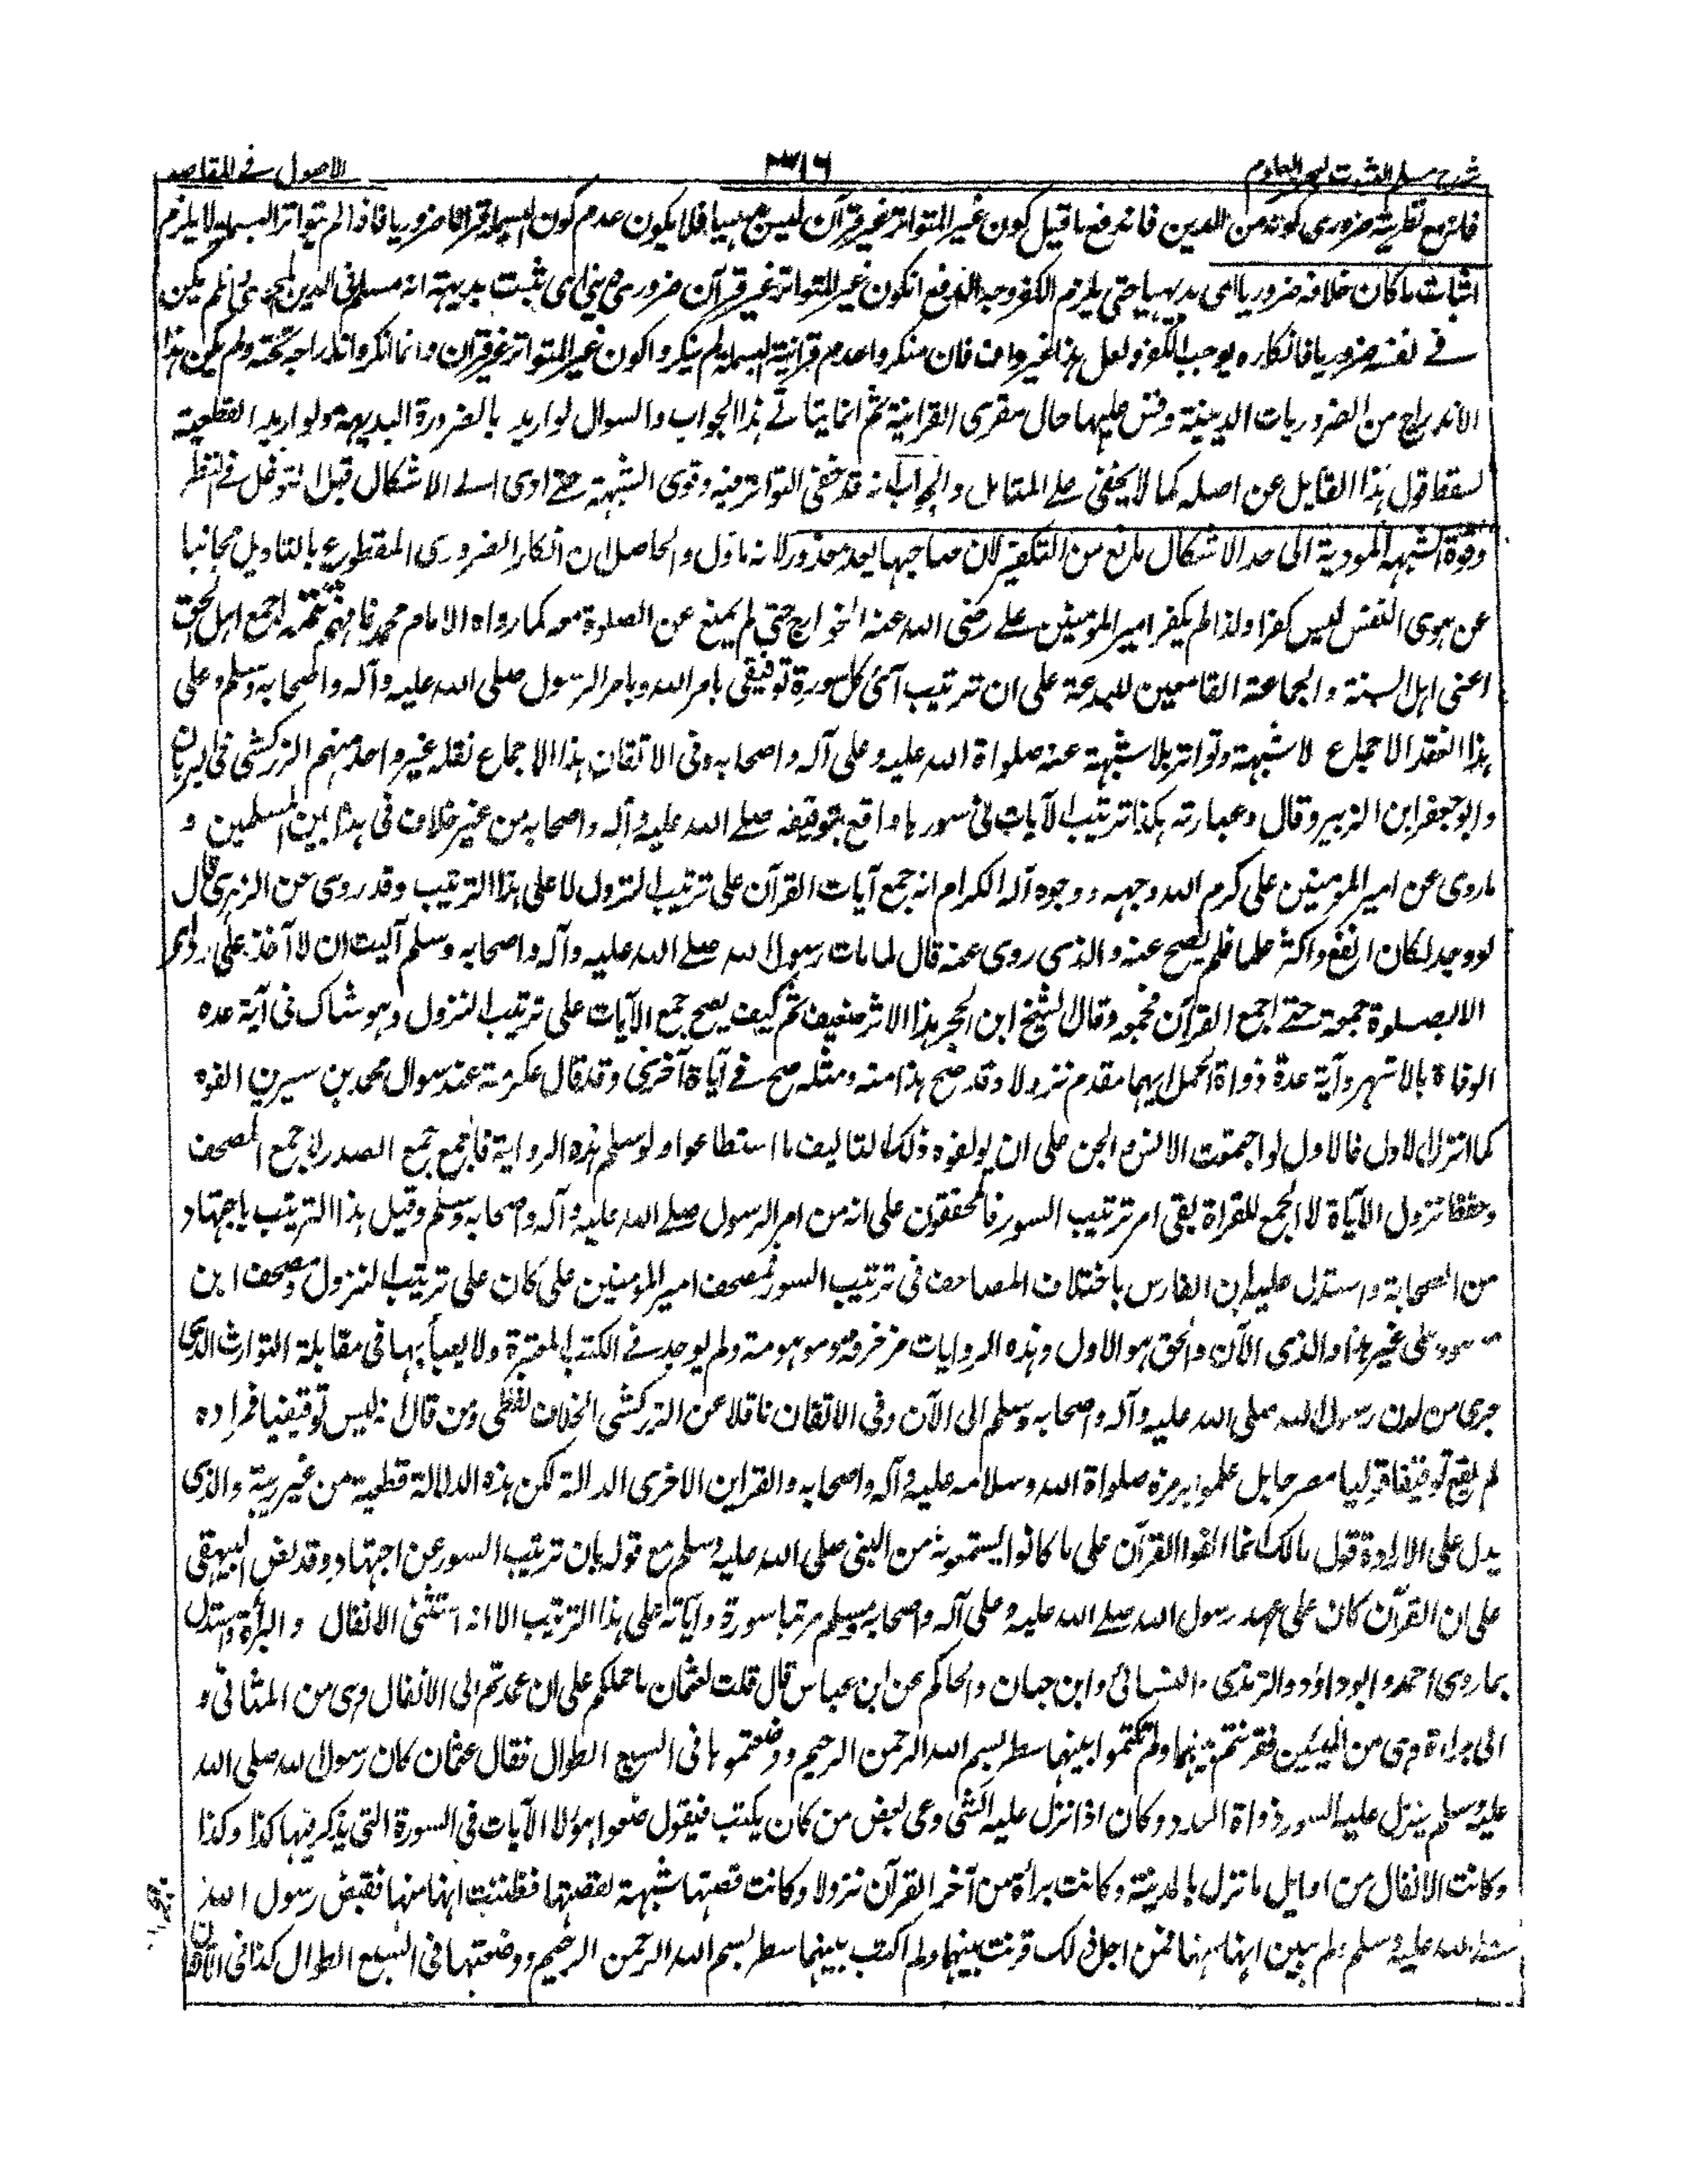 شرح مسلم الثبوت لبحر العلوم ٣١٦ الاصول في المقاصد
فانه مع نظريته ضروري كونه من الدين فاندفع ما قيل كون غير المتواتر غير قرآن ليس بديهيا فلا يكون عدم كون البسملة قرآنا ضروريا فاذا لم يتواتر البسملة لا يلزم
اثبات ما كان خلافه ضروريا اى بديهيا حتى يلزم الكفر وجه الدفع ان كون غير المتواتر غير قرآن ضروري ديني اى ثبت بديهة انه مسلم في الدين المحمدي وان لم يكن
في نفسه ضروريا فانكاره يوجب الكفر ولعل هذا غير واف فان منكروا عدم قرآنية البسملة لم ينكروا كون غير المتواتر غير قرآن وانما انكروا اندراجه تحته ولم يكن هذا
الاندراج من الضروريات الدينية وقس عليها حال مقرى القرانية ثم انما يتاتى هذا الجواب والسوال لو اريد بالضرورة البديهة ولو اريد القطعية
لسقط قول هذا القايل عن اصله كما لا يخفى على المتامل والجواب انه قد خفى التواتر فيه وقوى الشبهة حتى ادى الى الاشكال قبل التوغل في النظر
وقوة الشبهة المودية الى حد الاشكال مانع من التكفير لان صاحبها يعد معذورا لانه ماول والحاصل ان انكار الضروري المقطوع بالتاويل مجانبا
عن هوى النفس ليس كفرا ولذا لم يكفر امير المؤمنين على رضى الله عنه الخوارج حتى لم يمنع عن الصلوة معه كما رواه الامام محمد فافهم تتمة اجمع اهل الحق
اعنى اهل السنة والجماعة القامعين للبدعة على ان ترتيب آى كل سورة توقيفى بامر الله وبامر الرسول صلى الله عليه وآله واصحابه وسلم وعلى
هذا انعقد الاجماع لا شبهة وتواتر بلا شبهة عنه صلواة الله عليه وعلى آله واصحابه وفى الاتقان هذا الاجماع نقله غير واحد منهم الزركشى فى البرهان
وابو جعفر ابن الزبير وقال وعبارته هكذا ترتيب الآيات فى سورها واقع بتوقيفه صلى الله عليه وآله واصحابه من غير خلاف فى هذا بين المسلمين و
ما روى عن امير المؤمنين على كرم الله وجهه ووجوه آله الكرام انه جمع آيات القرآن على ترتيب النزول لا على هذا الترتيب وقد روى عن الزهرى قال
لو وجد لكان انفع واكثر علما فلم يصح عنه والذى روى عنه قال لما مات رسول الله صلى الله عليه وآله واصحابه وسلم آليت ان لا آخذ على ردائى
الا لصلوة جمعة حتى اجمع القرآن فجمعه وقال الشيخ ابن الحجر هذا الاثر ضعيف ثم كيف يصح جمع الآيات على ترتيب النزول وهو شاك فى آية عدة
الوفاة بالاشهر وآية عدة ذواة الحمل ايهما مقدم نزولا وقد صح هذا منه ومثله صح فى آياة اخرى وقد قال عكرمة عند سوال محمد بن سيرين الفوه
كما انزل الاول فالاول لو اجتمعت الانس والجن على ان يولفوه ذلك التاليف ما استطاعوا ولو سلم هذه الرواية فالجمع جمع الصدر لا جمع المصحف
وحفظ نزول الآياة لا الجمع للقراة بقى امر ترتيب السور فالمحققون على انه من امر الرسول صلى الله عليه وآله واصحابه وسلم وقيل هذا الترتيب باجتهاد
من الصحابة واستدل عليه ابن الفارس باختلاف المصاحف فى ترتيب السور فمصحف امير المؤمنين على كان على ترتيب النزول ومصحف ابن
مسعود على غير هذا والذى الآن والحق هو الاول وهذه الروايات مزخرفة موهومة ولم يوجد فى الكتب المعتبرة ولا يعبأ بها فى مقابلة التوارث الذى
جرى من لدن رسول الله صلى الله عليه وآله واصحابه وسلم الى الآن وفى الاتقان ناقلا عن الزركشى الخلاف لفظى ومن قال انه ليس توقيفيا فمراده
لم يقع توقيفا قوليا مصرحا بل علموا برمزه صلواة الله وسلامه عليه وآله واصحابه والقراين الاخرى الدالة لكن هذه الدلالة قطعية من غير ريبة والذى
يدل على الارادة قول مالك انما الفوا القرآن على ما كانوا يستمعونه من النبى صلى الله عليه وسلم مع قوله بان ترتيب السور عن اجتهاد وقد نص البيهقى
على ان القرآن كان على عهد رسول الله صلى الله عليه وعلى آله واصحابه وسلم مرتبا سورة وآياته على هذا الترتيب الا انه استثنى الانفال والبرأة واستدل
بما روى احمد وابو داؤد والترمذى والنسائى وابن حبان والحاكم عن ابن عباس قال قلت لعثمان ما حملكم على ان عمدتم الى الانفال وهى من المثانى و
الى براءة وهى من المئين فقرنتم بينهما ولم تكتبوا بينهما سطر بسم الله الرحمن الرحيم ووضعتموها فى السبع الطوال فقال عثمان كان رسول الله صلى الله
عليه وسلم ينزل عليه السور ذواة العدد وكان اذا نزل عليه الشى دعى بعض من كان يكتب فيقول ضعوا هؤلا الآيات فى السورة التى يذكر فيها كذا وكذا
وكانت الانفال من اوايل ما نزل بالمدينة وكانت براءة من آخر القرآن نزولا وكانت قصتها شبيهة لقصتها فظننت انها منها فقبض رسول الله
صلى الله عليه وسلم ولم يبين انها منها فمن اجل ذلك قرنت بينهما ولم اكتب بينهما سطر بسم الله الرحمن الرحيم ووضعتها فى السبع الطوال كذا فى الاتقان